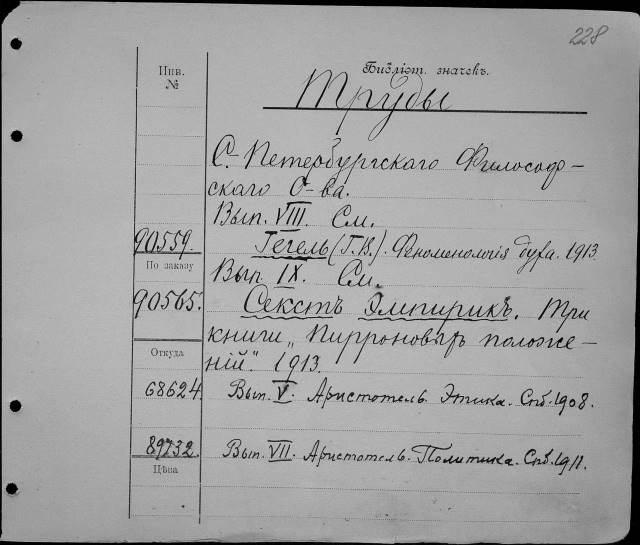 228
Инв. №
Библіот. значекъ.
Труды
С.-Петербургскаго Философ-
скаго О-ва.
Вып. VIII. См.
90559. Гегель (Г.В.). Феноменологія духа. 1913.
По заказу
Вып. IX. См.
90565. Секстъ Эмпирикъ. Три
книги „Пирроновыхъ положе-
ній“. 1913.
Откуда
68624 Вып. V. Аристотель. Этика. Спб. 1908.
89732. Вып. VII. Аристотель. Политика. Спб. 1911.
Цѣна